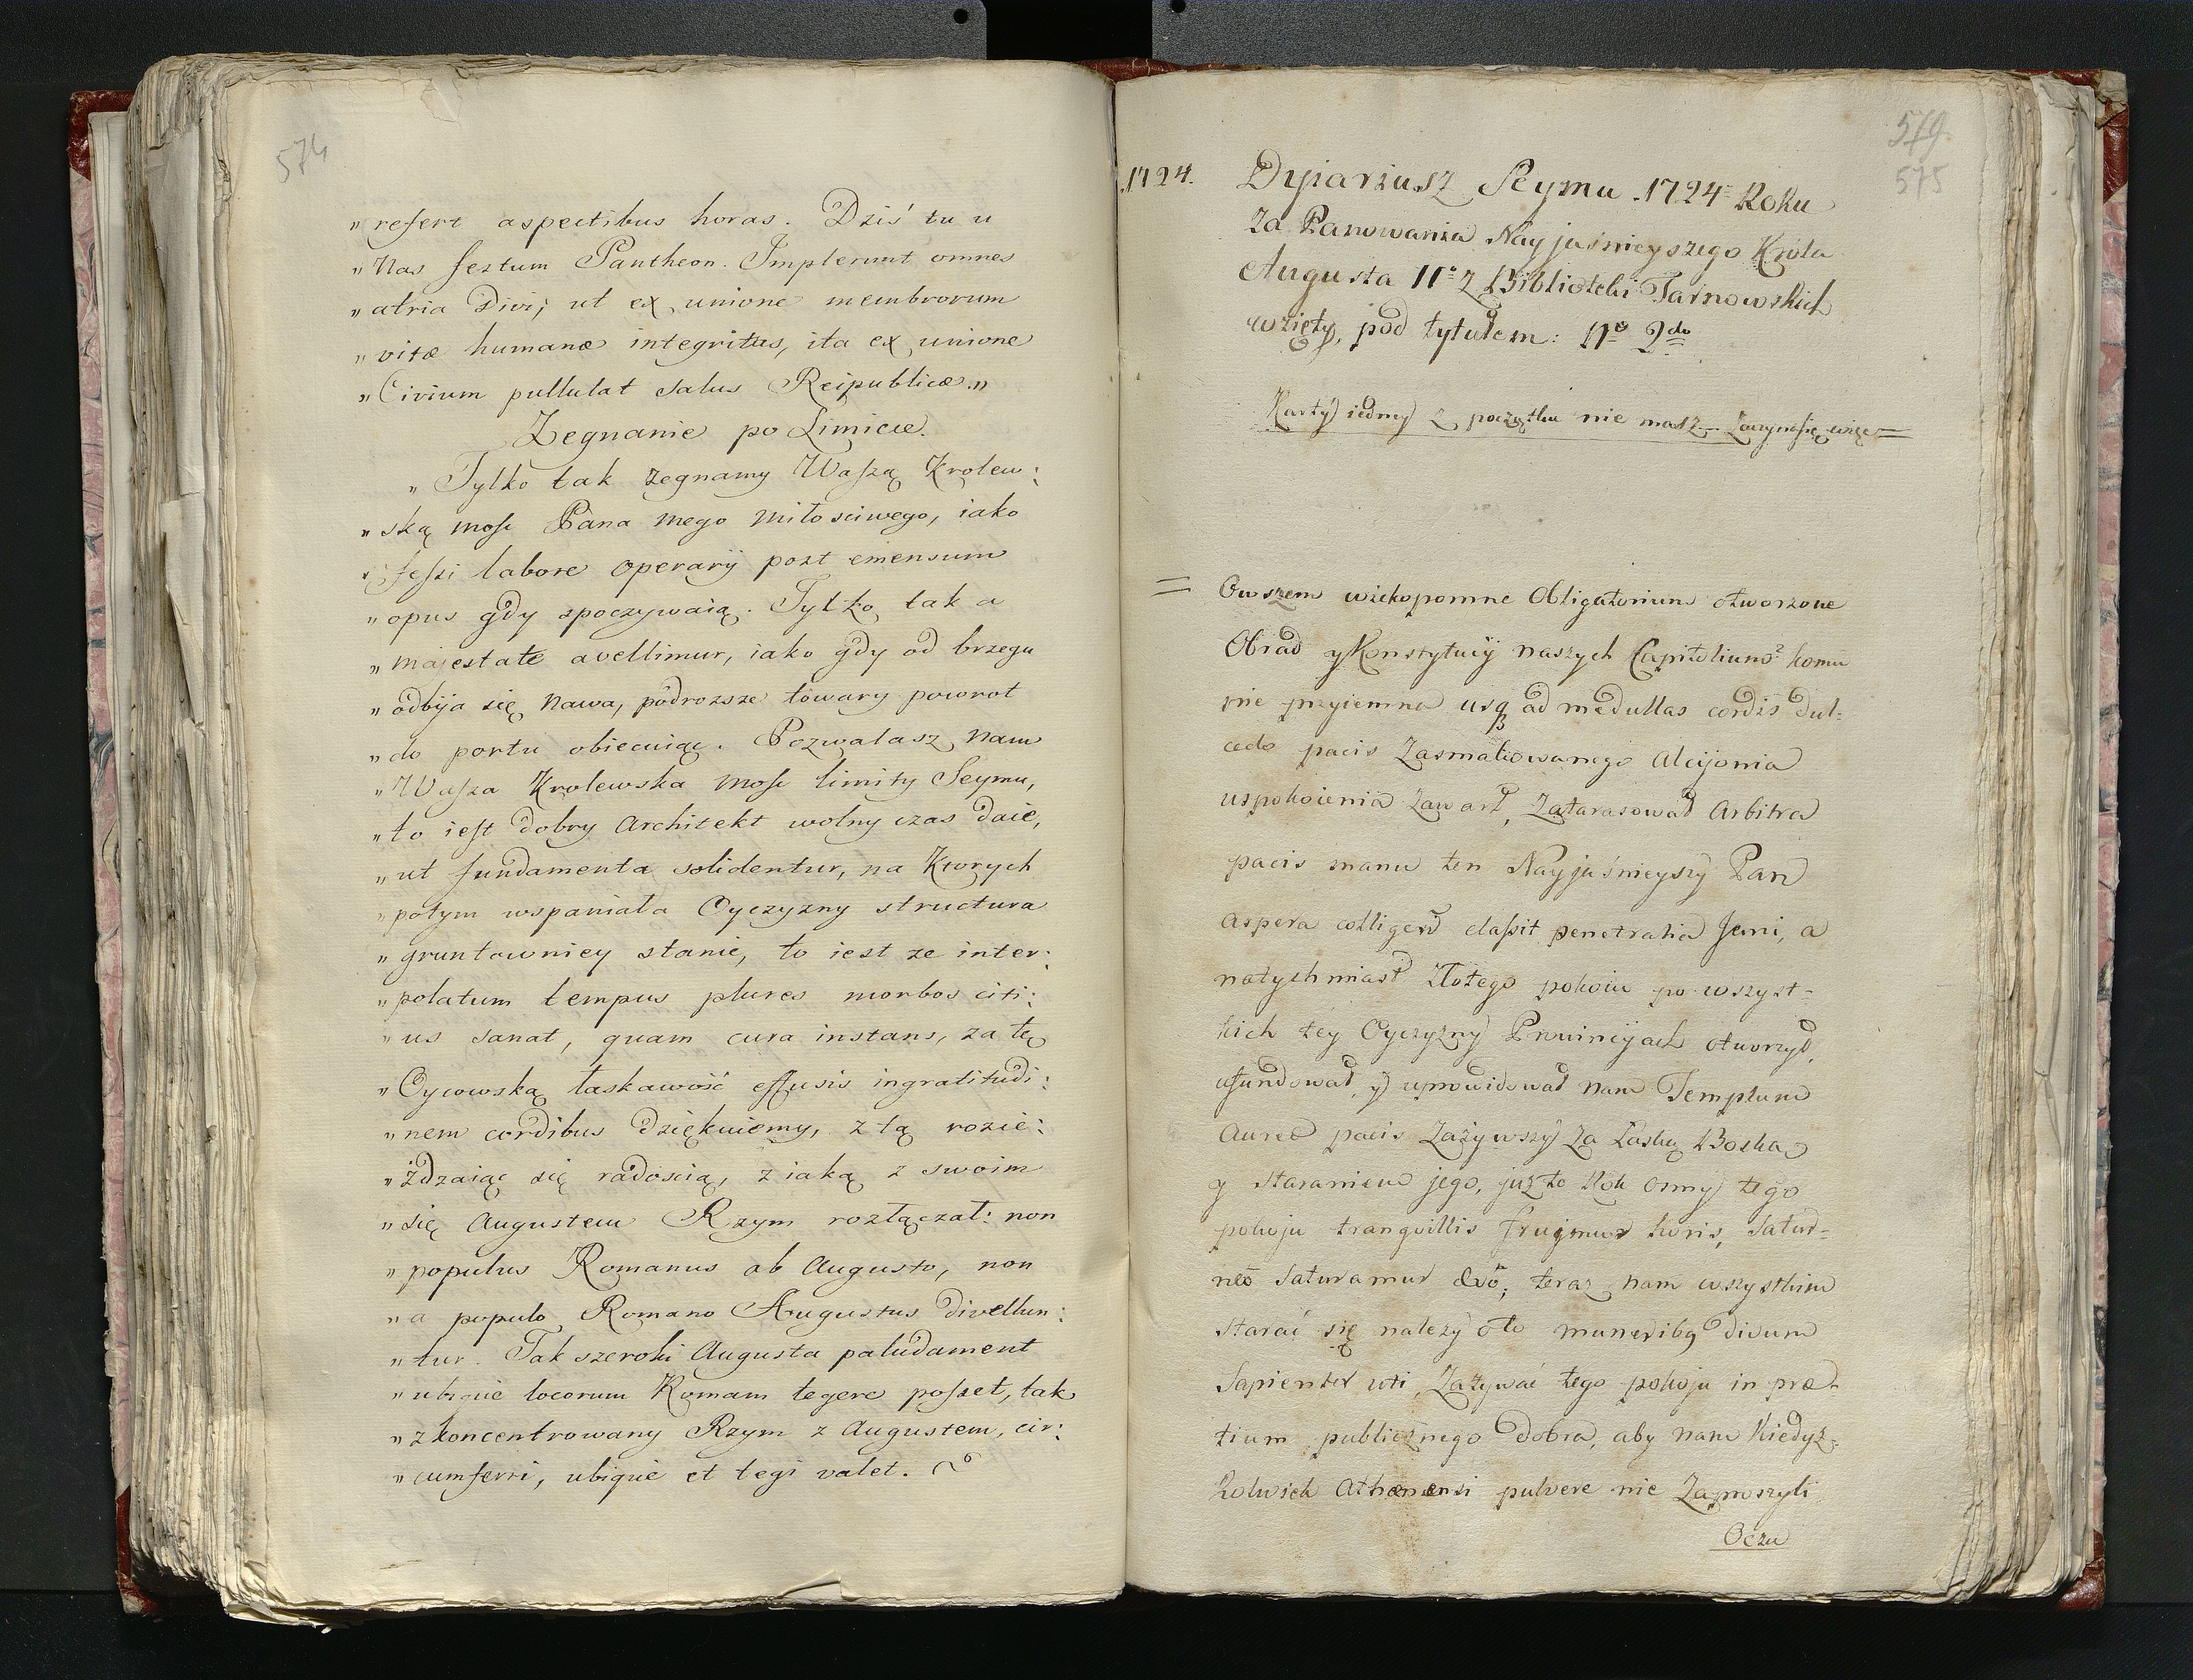 574
„ refert aspectibus horas. Dziś tu u
„ Nas festum Pantheon. Implerunt omnes
„ atria Divi; ut ex unione membrorum
„ vitæ humanæ integritas, ita ex unione
„ Civium pullulat salus Reipublicæ. „
Zegnanie po Limicie.
„ Tylko tak zegnamy Waszą Krolew:
„ ską mość Pana mego miłościwego, iako
„ fessi labore operarij post emensum
„ opus gdy spoczywaią. Tylko tak a
„ majestate avellimur, iako gdy od brzegu
„ odbija się Nawa, podrozsze towary powrot
„ do portu obiecuiąc. Pozwalasz nam
„ Wasza Krolewska mość limity Seymu,
„ to iest dobry Architekt wolny czas daie,
„ ut fundamenta solidentur, na Ktorych
„ potym wspaniała Oyczyzny structura
„ gruntowniey stanie, to iest ze inter:
„ polatum tempus plures morbos citi:
„ us sanat, quam cura instans, za tę
„ Oycowską łaskawość effusis in gratitudi:
„ nem cordibus dziękuiemy, z tą rozie:
„ zdzaiąc się radoscią, z iaką z swoim
„ się Augustem Rzym rozłączał: non
„ populus Romanus ab Augusto, non
„ a populo Romano Augustus divellun:
„ tur. Tak szeroki Augusta paludament
„ ubique locorum Romam tegere posset, tak
„ zkoncentrowany Rzym z Augustem, cir:
„ cumferri, ubique et tegi valet.
579.
575
1724. Dyiariusz Seymu 1724 Roku
Za Panowania Nayjaśnieyszego Króla
Augusta IIº z Biblioteki Tarnowskich
wzięty, pod tytułem: Nº 2do
Karty iedney z początku nie masz. Zaczyna się więc =
= Owszem wiekopomne Obligatorium otworzone
Obrad y Konstytucij naszych Capitolium? komu
nie przyiemna usq3 ad medullas cordis dul:
cedo pacis Zasmakowanego Alcijonia
uspokoienia zawarł, Zatarasował Arbitra
pacis manu ten Nayjaśnieyszy Pan
aspera colligens clasit penetralia Jani, a
natychmiast złotego pokoiu po wszyst-
kich tey Oyczyzny Prowincyach otworzył,
ufundował, y uprowidował nam Templum
Aureæ pacis Zażywszy za Łaską Boską
y Staraniem jego, już to Rok osmy tego
pokoju tranquillis fruimur horis, Satur-
neo Saturamur ævo; teraz nam wszystkim
starać się należy o to muneribq Divum
Sapienter uti, Zażywać tego pokoju in præ-
tium publicznego dobra, aby nam Kiedyz-
kolwiek Athenensi pulvere nie Zaprószyli
Oczu